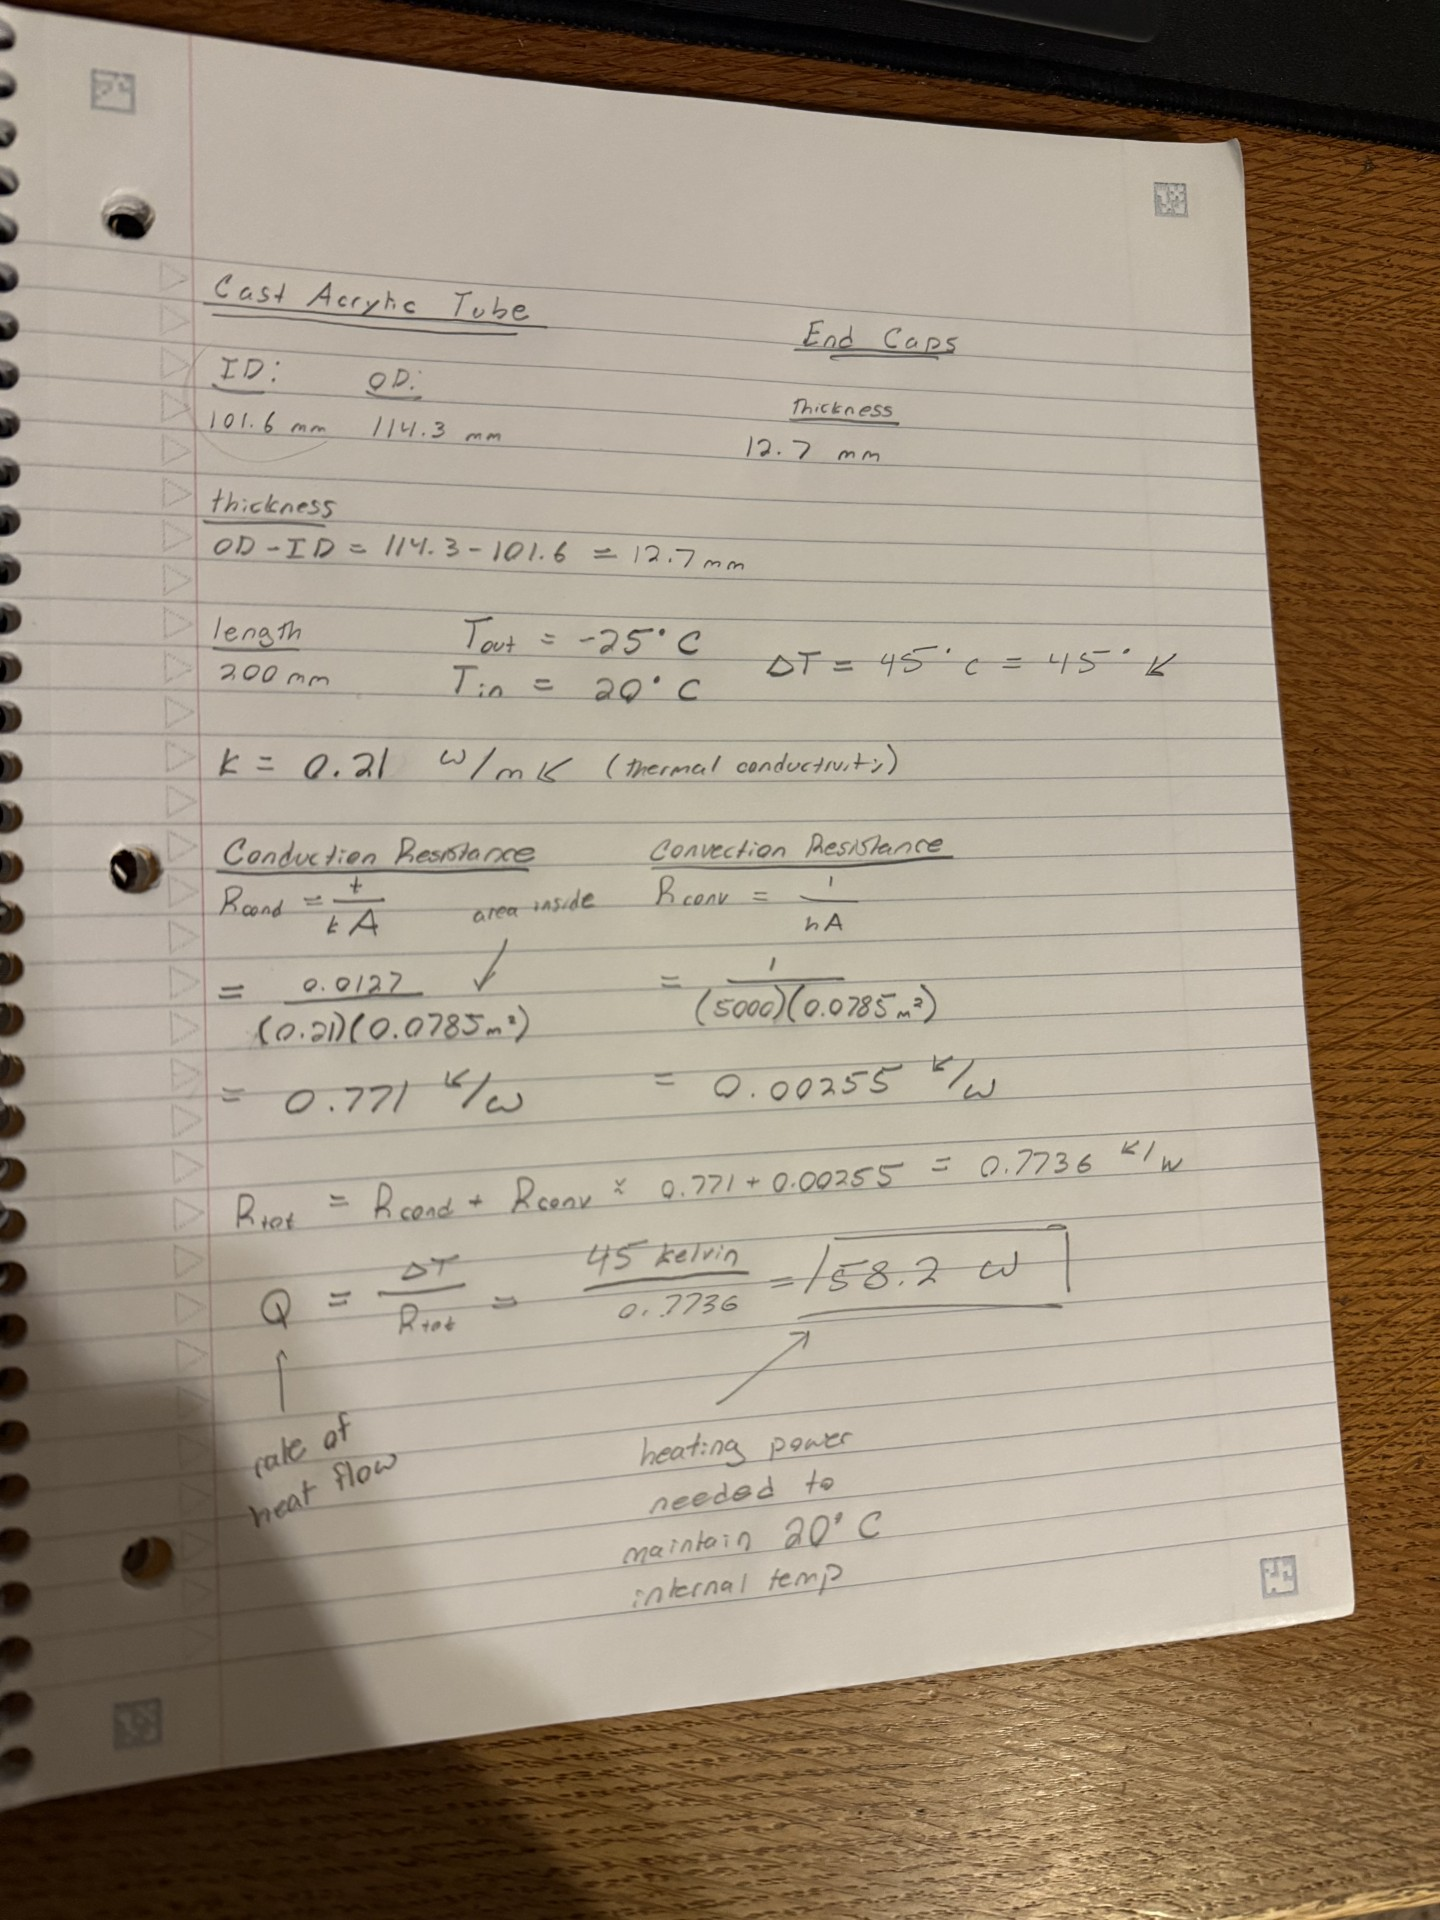 Cast Acrylic Tube
End Caps
ID: OD:
Thickness
101.6 mm 114.3 mm
12.7 mm
thickness
OD - ID = 114.3 - 101.6 = 12.7 mm
length
200 mm
Tout = -25° C
Tin = 20° C
ΔT = 45° c = 45° K
k = 0.21 W/mK (thermal conductivity)
Conduction Resistance
Rcond = t / kA
area inside
= 0.0127 / (0.21)(0.0785 m²)
= 0.771 K/W
Convection Resistance
Rconv = 1 / hA
= 1 / (5000)(0.0785 m²)
= 0.00255 K/W
Rtot = Rcond + Rconv ≈ 0.771 + 0.00255 = 0.7736 K/W
Q = ΔT / Rtot = 45 kelvin / 0.7736 = 58.2 W
rate of
heat flow
heating power
needed to
maintain 20° C
internal temp